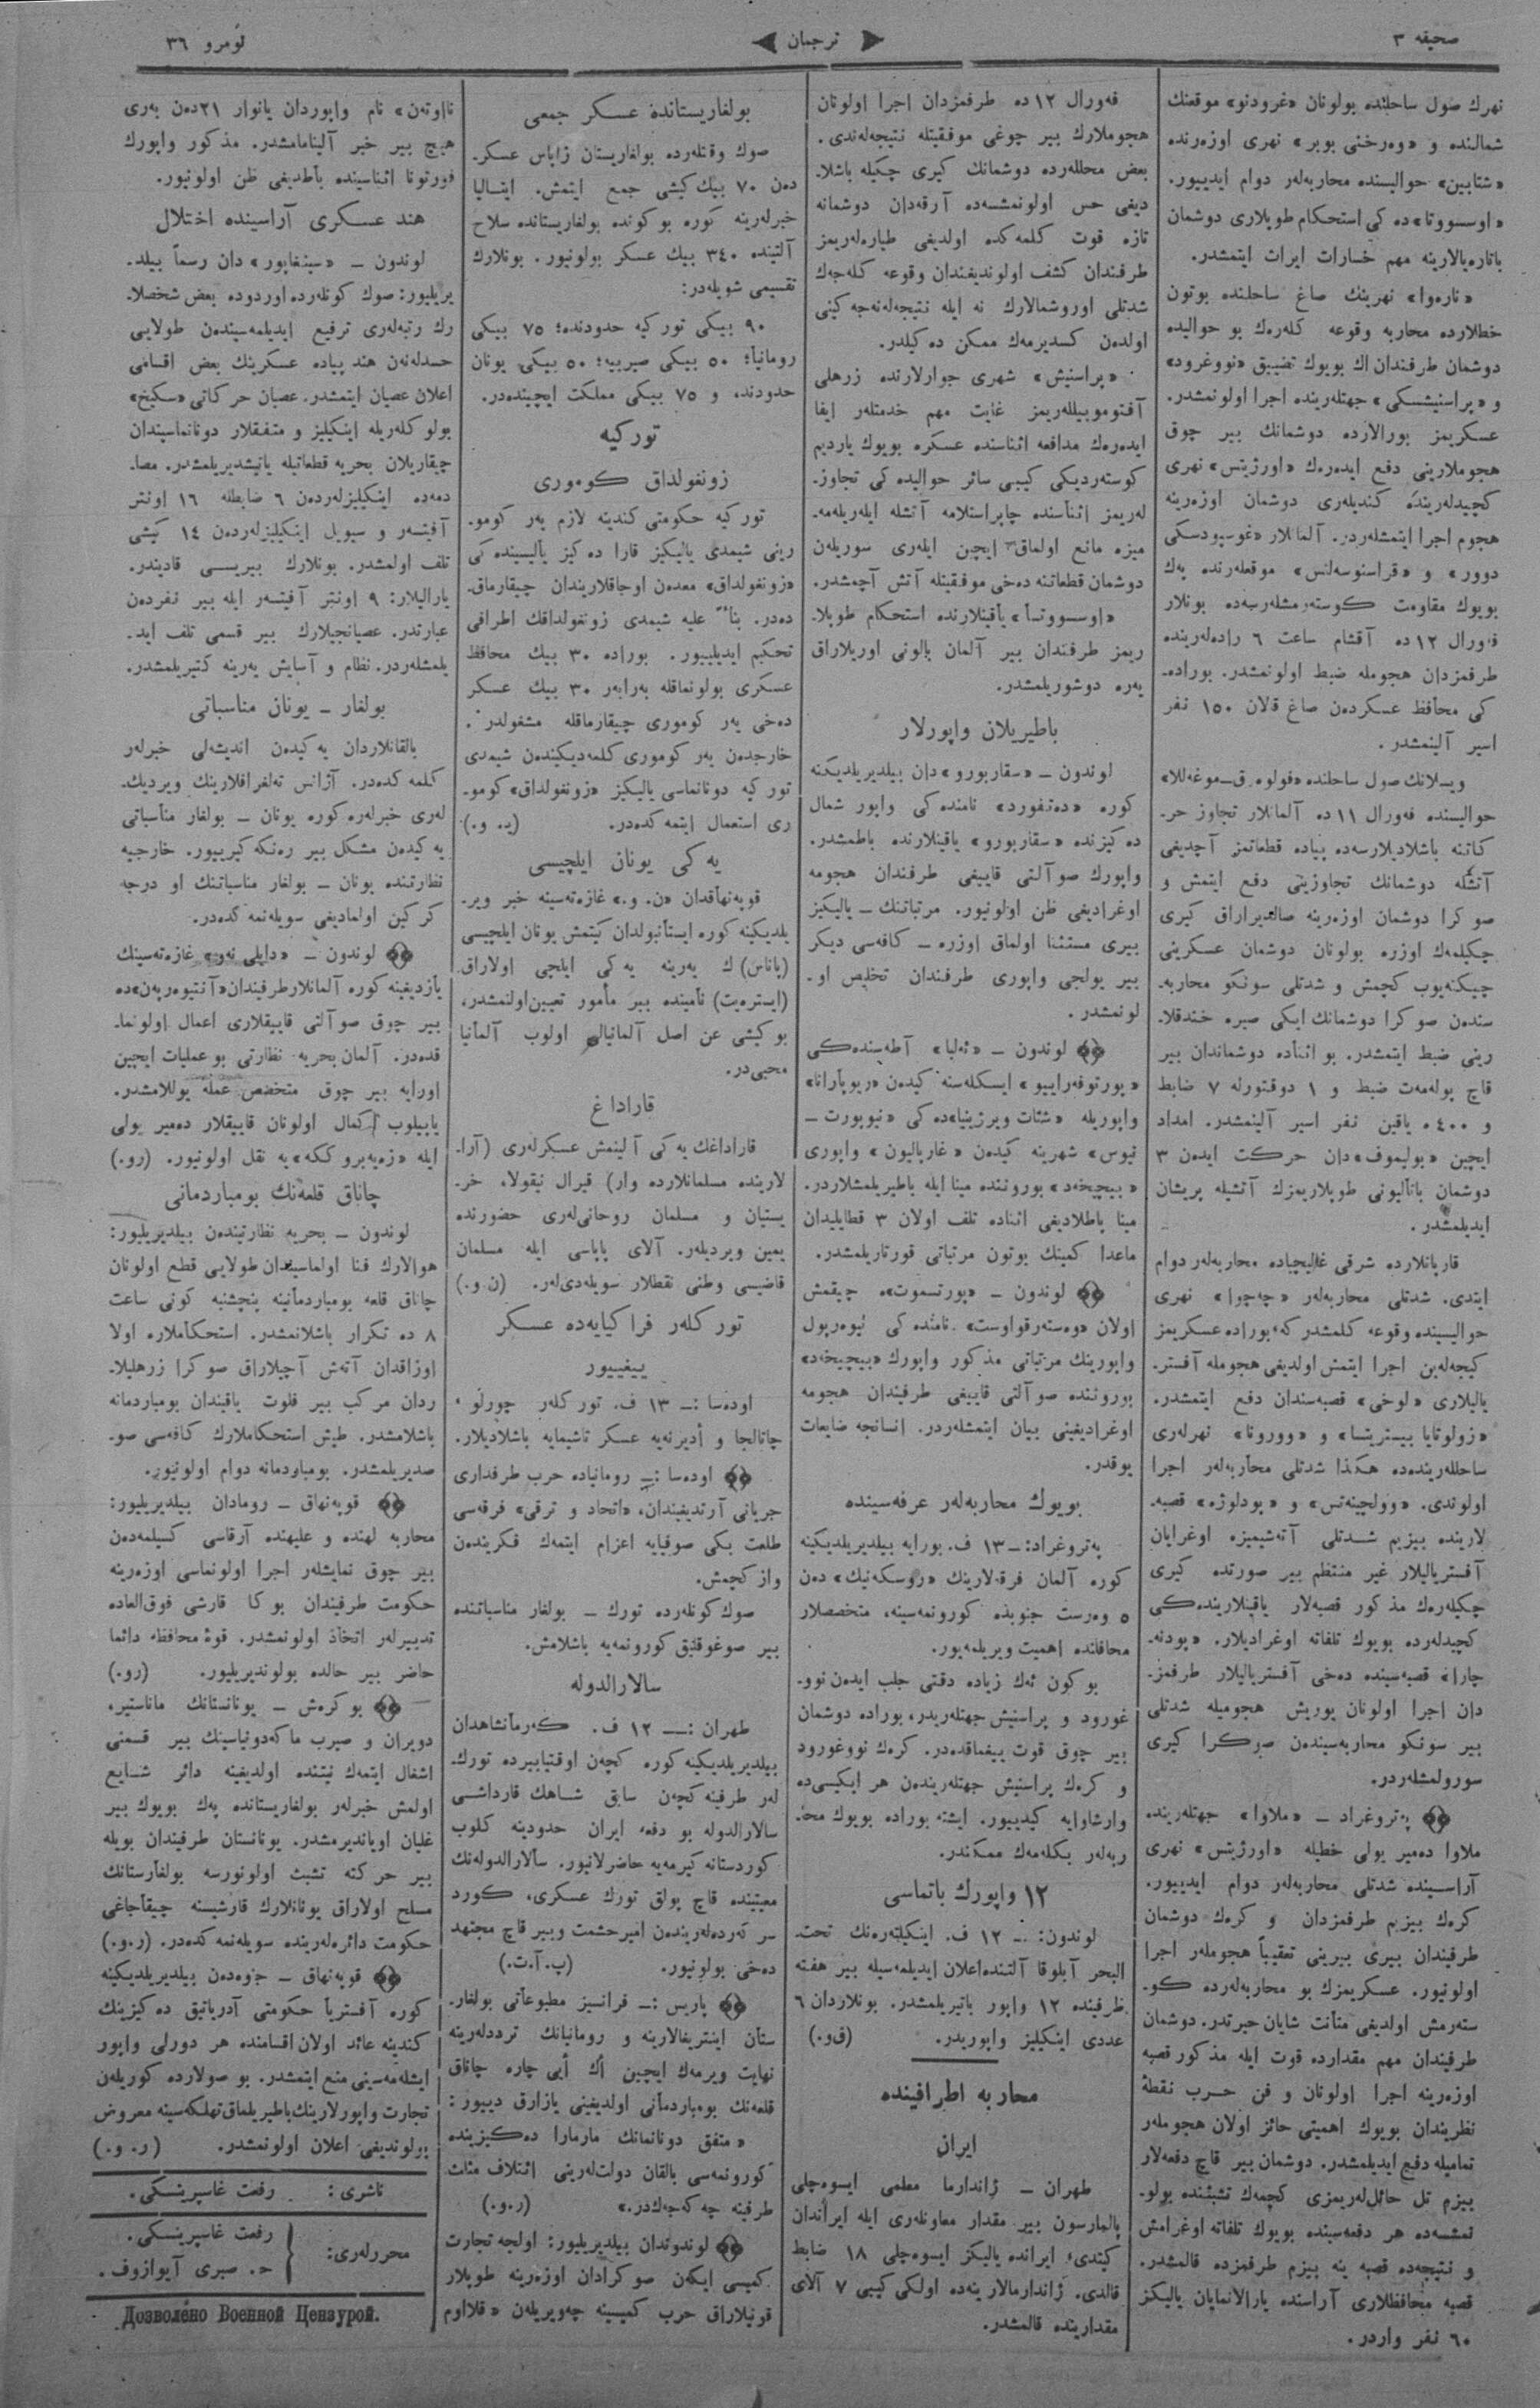 صحیفه ٣
ترجمان
نومرو ٣٦
نهرك صول ساحلنده بولونان «غرودنو» موقعنك
شمالنده و «وەرخنی بوبر» نهری اوزەرنده
«شتابین» حوالیسنده محاربەلەر دوام ایدییور.
«اوسووتا»ده کی استحکام طوپلاری دوشمان
باتاریالارینه مهم خسارات ایراث ایتمشدر.
«نارەوا» نهرینك صاغ ساحلنده بوتون
خطلارده محاربه وقوعه کلەرەك بو حوالیده
دوشمان طرفندان اك بویوك تضییق «نووغرود»
و «پراسنیشسکی» جهتلەرینده اجرا اولونمشدر.
عسکریمز بورالارده دوشمانك بیر چوق
هجوملارینی دفع ایدەرەك «اورژیتس» نهری
کچیدلەرینده کندیلەری دوشمان اوزەرینه
هجوم اجرا ایتمشلەردر. آلمانلار «غوسپودسکی
دوور» و «قراسنوسەلتس» موقعلەرنده پەك
بویوك مقاومت کوستەرمشلەرسەده بونلار
فەورال ١٢ده آقشام ساعت ٦ رادەلەرینده
طرفمزدان هجومله ضبط اولونمشدر. بورادە-
کی محافظ عسکردەن صاغ قالان ١٥٠ نفر
اسیر آلینمشدر.
ویسلانك صول ساحلنده «فولوەرق-موغەللا»
حوالیسنده فەورال ١١ده آلمانلار تجاوز حر-
کاتنه باشلادیلارسەده پیاده قطعاتمز آچدیغی
آتشله دوشمانك تجاوزینی دفع ایتمش و
صوکرا دوشمان اوزەرینه صالدیراراق کیری
چکیلمەك اوزره بولونان دوشمان عسکرینی
چیکنەیوب کچمش و شدتلی سونکو محاربە-
سندەن صوکرا دوشمانك ایکی صیره خندقلا-
رینی ضبط ایتمشدر. بو اثناده دوشماندان بیر
قاچ پولەمەت ضبط و ١ دوقتورله ٧ ضابط
و ٤٠٠ه یاقین نفر اسیر آلینمشدر. امداد
ایچین «بولیموف»دان حرکت ایدەن ٣
دوشمان باتالیونی طوپلاریمزك آتشیله پریشان
ایدیلمشدر.
قارپاتلارده شرقی غالیچیاده محاربەلەر دوام
ایتدی. شدتلی محاربەلەر «چەچوا» نهری
حوالیسینده وقوعه کلمشدر که بوراده عسکریمز
کیجەلەین اجرا ایتمش اولدیغی هجومله آفستر-
یالیلاری «لوخی» قصبەسندان دفع ایتمشدر.
«زولوتایا بیستریتسا» و «وورونا» نهرلەری
ساحللەریندەده هکذا شدتلی محاربەلەر اجرا
اولوندی. «وولچینەتس» و «پودلوژه» قصبە-
لارینده بیزیم شدتلی آتەشیمیزه اوغرایان
آفستریالیلار غیر منتظم بیر صورتده کیری
چکیلەرەك مذکور قصبەلار یاقینلارینده‌کی
کچیدلەرده بویوك تلفاته اوغرادیلار. «پودنە-
چارا» قصبەسینده دەخی آفستریالیلار طرفمز-
دان اجرا اولونان یوریش هجومیله شدتلی
بیر سونکو محاربەسیندەن صوکرا کیری
سورولمشلەردر.
پەتروغراد – «ملاوا» جهتلەرینده
ملاوا دەمیر یولی خطیله «اورژیتس» نهری
آراسینده شدتلی محاربەلەر دوام ایدییور.
کرەك بیزیم طرفمزدان و کرەك دوشمان
طرفیندان بیری بیرینی تعقیباً هجوملەر اجرا
اولونیور. عسکریمزك بو محاربەلەرده کو-
ستەرمش اولدیغی متانت شایان حیرتدر. دوشمان
طرفیندان مهم مقدارده قوت ایله مذکور قصبه
اوزەرینه اجرا اولونان و فن حرب نقطهٔ
نظریندان بویوك اهمیتی حائز اولان هجوملەر
تمامیله دفع ایدیلمشدر. دوشمان بیر قاچ دفعەلار
بیزیم تل حائللەریمزی کچمەك تشبثنده بولو-
نمشسەده هر دفعەسینده بویوك تلفاته اوغرامش
و نتیجەده قصبه ینه بیزیم طرفمزده قالمشدر.
قصبه محافظلاری آراسنده یارالانمایان یالیکز
٦٠ نفر واردر.
فەورال ١٢ده طرفمزدان اجرا اولونان
هجوملارك بیر چوغی موفقیتله نتیجەلەندی.
بعض محللەرده دوشمانك کیری چکیله باشلا-
دیغی حس اولونمشسەده آرقەدان دوشمانه
تازه قوت کلمەکده اولدیغی طیارەلەریمز
طرفندان کشف اولوندیغندان وقوعه کلەجەك
شدتلی اوروشمالارك نه ایله نتیجەلەنەجەکینی
اولدەن کسدیرمەك ممکن دەکیلدر.
«پراسنیش» شهری جوارلارنده زرهلی
آفتوموبیللەریمز غایت مهم خدمتلەر ایفا
ایدەرەك مدافعه اثناسنده عسکره بویوك یاردیم
کوستەردیکی کیبی سائر حوالیده کی تجاوز-
لەریمز اثناسنده چاپراستلامه آتشله ایلەریلەمە-
میزه مانع اولماق ایچین ایلەری سوریلەن
دوشمان قطعاتنه دەخی موفقیتله آتش آچمشدر.
«اوسووتسا» یاقینلارنده استحکام طوپلا-
ریمز طرفندان بیر آلمان بالونی اوریلاراق
یەره دوشوریلمشدر.
باطیریلان واپورلار
لوندون – «سقاربورو»دان بیلدیریلدیکنه
کوره «دەتفورد» نامنده کی واپور شمال
دەکیزنده «سقاربورو» یاقینلارنده باطمشدر.
واپورك صو آلتی قاییغی طرفندان هجومه
اوغرادیغی ظن اولونیور. مرتباتنك – یالیکیز
بیری مستثنا اولماق اوزره – کافەسی دیکر
بیر یولجی واپوری طرفندان تخلیص او-
لونمشدر.
لوندون – «ئەلبا» آطەسنده‌کی
«پورتوفەراییو» ایسکلەسنه کیدەن «ریوپارانا»
واپوریله «شتات ویرژینیا»ده کی «نیوپورت –
نیوس» شهرینه کیدەن «غارپالیون» واپوری
«بیچیخەد» بوروننده مینا ایله باطیریلمشلاردر.
مینا پاطلادیغی اثناده تلف اولان ٣ قطایلیدان
ماعدا کمینك بوتون مرتباتی قورتاریلمشدر.
لوندون – «پورتسموت»ه چیقمش
اولان «وەستەرقواوست» نامنده کی لیوەرپول
واپورینك مرتباتی مذکور واپورك «بیچیخەد»
بوروننده صو آلتی قاییغی طرفیندان هجومه
اوغرادیغینی بیان ایتمشلەردر. انسانجه ضایعات
یوقدر.
بویوك محاربەلەر عرفەسینده
پەتروغراد: – ١٣ ف. بورایه بیلدیریلدیکینه
کوره آلمان فرقەلارینك «روسکەنیك» دەن
٥ وەرست جنوبده کورونمەسینه، متخصصلار
محافلنده اهمیت ویریلمەیور.
بو کون ئەك زیاده دقتی جلب ایدەن نوو-
غورود و پراسنیش جهتلەریدر، بوراده دوشمان
بیر چوق قوت ییغماقدەدر. کرەك نووغورود
و کرەك پراسنیش جهتلەریندەن هر ایکیسی‌ده
وارشاوایه کیدییور. ایشته بوراده بویوك محا-
ربەلەر بکلەمەك ممکندر.
١٢ واپورك باتماسی
لوندون: – ١٢ ف. اینکیلتەرەنك تحت
البحر آبلوقا آلتنده اعلان ایدیلمەسیله بیر هفته
ظرفینده ١٢ واپور باتیریلمشدر. بونلاردان ٦
عددی اینکیلیز واپوریدر. (ق‌و.)
محاربه اطرافینده
ایران
طهران – ژاندارما معلمی ایسوەچلی
پالمارسون بیر مقدار معاونلەری ایله ایراندان
کیتدی. ایرانده یالیکز ایسوەچلی ١٨ ضابط
قالدی. ژاندارمالار ینەده اولکی کیبی ٧ آلای
مقدارینده قالمشدر.
بولغاریستانده عسکر جمعی
صوك وقتلەرده بولغاریستان زاپاس عسکر-
دەن ٧٠ بیك کیشی جمع ایتمش. ایتالیا
خبرلەرینه کوره بو کونده بولغاریستانده سلاح
آلتینده ٣٤٠ بیك عسکر بولونیور. بونلارك
تقسیمی شویلەدر:
٩٠ بیکی تورکیه حدودنده؛ ٧٥ بیکی
رومانیا؛ ٥٠ بیکی صیربیه؛ ٥٠ بیکی یونان
حدودنده، و ٧٥ بیکی مملکت ایچیندەدر.
تورکیه
زونغولداق کوموری
تورکیه حکومتی کندینه لازم یەر کومو-
رینی شیمدی یالیکیز قارا دەکیز یالیسینده کی
«زونغولداق» معدەن اوجاقلاریندان چیقارماق-
دەدر. بناءً علیه شیمدی زونغولداقك اطرافی
تحکیم ایدیلییور. بوراده ٣٠ بیك محافظ
عسکری بولونماقله بەرابەر ٣٠ بیك عسکر
دەخی یەر کوموری چیقارماقله مشغولدر.
خارجدەن یەر کوموری کلمەدیکیندەن شیمدی
تورکیه دونانماسی یالیکیز «زونغولداق» کومو-
ری استعمال ایتمەکدەدر. (ی. و.)
یەکی یونان ایلچیسی
قوپەنهاقدان «ن. و.» غازەتەسینه خبر ویر-
یلدیکینه کوره ایستانبولدان کیتمش یونان ایلچیسی
(پاناس)ك یەرینه یەکی ایلچی اولاراق
(ایسترەیت) نامینده بیر مأمور تعیین اولنمشدر،
بو کیشی عن اصل آلمانیالی اولوب آلمانیا
محبی‌در.
قاراداغ
قاراداغك یەکی آلینمش عسکرلەری (آرا-
لارینده مسلمانلارده وار) قیرال نیقولا، خر-
یستیان و مسلمان روحانی‌لەری حضورنده
یمین ویردیلەر. آلای پاپاسی ایله مسلمان
قاضیسی وطنی نقطلار سویلەدی‌لەر. (ن و.)
تورکلەر فراکیایەده عسکر
ییغییور
اودەسا :– ١٣ ف. تورکلەر چورلو،
چاتالجا و أدیرنەیه عسکر تاشیمایه باشلادیلار.
اودەسا :– رومانیاده حرب طرفداری
جریانی آرتدیغیندان، «اتحاد و ترقی» فرقەسی
طلعت بکی صوفیایه اعزام ایتمەك فکریندەن
واز کچمش.
صوك کونلەرده تورك – بولغار مناسباتنده
بیر صوغوقلیق کورونمەیه باشلامش.
سالارالدوله
طهران :— ١٢ ف. کەرمانشاهدان
بیلدیریلدیکینه کوره کچەن اوقتیابیرده تورك-
لەر طرفینه کچەن سابق شاهك قارداشی
سالارالدوله بو دفعه ایران حدودینه کلوب
کوردستانه کیرمەیه حاضرلانیور. سالارالدولەنك
معیتینده قاچ پولق تورك عسکری، کورد
سرکردەلەریندەن امیرحشمت و بیر قاچ مجتهد
دەخی بولونیور. (پ.آ.ت.)
پاریس :– فرانسیز مطبوعاتی بولغار-
ستان اینتریغالارینه و رومانیانك ترددلەرینه
نهایت ویرمەك ایچین أك أیی چاره چاناق
قلعەنك بومباردمانی اولدیغینی یازارق دییور:
«متفق دونانمانك مارمارا دەکیزینده
کورونمەسی بالقان دولتلەرینی ائتلاف مثلث
طرفینه چەکەجەك‌در.» (ر.و.)
لوندوندان بیلدیریلیور: اولجه تجارت
کمیسی ایکەن صوکرادان اوزەرینه طوپلار
قونیلاراق حرب کمیسینه چەویریلەن «قلااوم
نااوتەن» نام واپوردان یانوار ٢١دەن بەری
هیچ بیر خبر آلینامامشدر. مذکور واپورك
فورتونا اثناسینده باطدیغی ظن اولونیور.
هند عسکری آراسینده اختلال
لوندون – «سینغاپور»دان رسماً بیلد-
یریلیور: صوك کونلەرده اوردوده بعض شخصلا-
رك رتبەلەری ترفیع ایدیلمەسیندەن طولایی
حسدلەنەن هند پیاده عسکرینك بعض اقسامی
اعلان عصیان ایتمشدر. عصیان حرکاتی «سکیخ»
بولوکلەریله اینکیلیز و متفقلار دونانماسیندان
چیقاریلان بحریه قطعاتیله یاتیشدیریلمشدر. مصا-
دمەده اینکیلیزلەردەن ٦ ضابطله ١٦ اونتر
آفیتسەر و سیویل اینکیلیزلەردەن ١٤ کیشی
تلف اولمشدر. بونلارك بیریسی قادیندر.
یارالیلار: ٩ اونتر آفیتسەر ایله بیر نفردەن
عبارتدر. عصیانجیلارك بیر قسمی تلف اید-
یلمشلەردر. نظام و آسایش یەرینه کتیریلمشدر.
بولغار – یونان مناسباتی
بالقانلاردان یەکیدەن اندیشەلی خبرلەر
کلمەکدەدر. آژانس تەلغرافلارینك ویردیك-
لەری خبرلەره کوره یونان – بولغار مناسباتی
یەکیدەن مشکل بیر رەنکه کیرییور. خارجیه
نظارتنده یونان – بولغار مناسباتنك او درجه
کرکین اولمادیغی سویلەنمەکدەدر.
لوندون – «دایلی نەوز» غازەتەسینك
یازدیغینه کوره آلمانلار طرفیندان «آنتیوەرپەن»ده
بیر چوق صو آلتی قاییقلاری اعمال اولونما-
قدەدر. آلمان بحریه نظارتی بو عملیات ایچین
اورایه بیر چوق متخصص عمله یوللامشدر.
یاپیلوب اکمال اولونان قاییقلار دەمیر یولی
ایله «زەیەبروککه»یه نقل اولونیور. (رو.)
چاناق قلعەنك بومباردمانی
لوندون – بحریه نظارتیندەن بیلدیریلیور:
هوالارك فنا اولماسیندان طولایی قطع اولونان
چاناق قلعه بومباردمانینه پنچشنبه کونی ساعت
٨ ده تکرار باشلانمشدر. استحکاملاره اولا
اوزاقدان آتەش آچیلاراق صوکرا زرهلیلا-
ردان مرکب بیر فلوت یاقیندان بومباردمانه
باشلامشدر. طیش استحکاملارك کافەسی صو-
صدیریلمشدر. بومباردمانه دوام اولونیور.
قوپەنهاق – رومادان بیلدیریلیور:
محاربه لهنده و علیهنده آرقاسی کسیلمەدەن
بیر چوق نمایشلەر اجرا اولونماسی اوزەرینه
حکومت طرفیندان بوکا قارشی فوق‌العاده
تدبیرلەر اتخاذ اولونمشدر. قوهٔ محافظه دائما
حاضر بیر حالده بولوندیریلیور. (رو.)
بوکرەش – یونانستانك ماناستیر،
دویران و صیرب ماکەدونیاسینك بیر قسمنی
اشغال ایتمەك نیتنده اولدیغینه دائر شایع
اولمش خبرلەر بولغاریستانده پەك بویوك بیر
غلیان اویاندیرمشدر. یونانستان طرفیندان بویله
بیر حرکته تشبث اولونورسه بولغارستانك
مسلح اولاراق یونانلارك قارشیسنه چیقاجاغی
حکومت دائرەلەرینده سویلەنمەکدەدر. (ر.و.)
قوپەنهاق – جنوەدەن بیلدیریلدیکینه
کوره آفستریا حکومتی آدریاتیق دەکیزینك
کندینه عائد اولان اقسامنده هر دورلی واپور
ایشلەمەسینی منع ایتمشدر. بو صولارده کوریلەن
تجارت واپورلارینك باطیریلماق تهلکەسینه معروض
بولوندیغی اعلان اولونمشدر. (ر. و.)
ناشری : رفعت غاسپرینسکی.
محررلەری: رفعت غاسپرینسکی.
ح. صبری آیوازوف.
Дозволено Военной Цензурой.